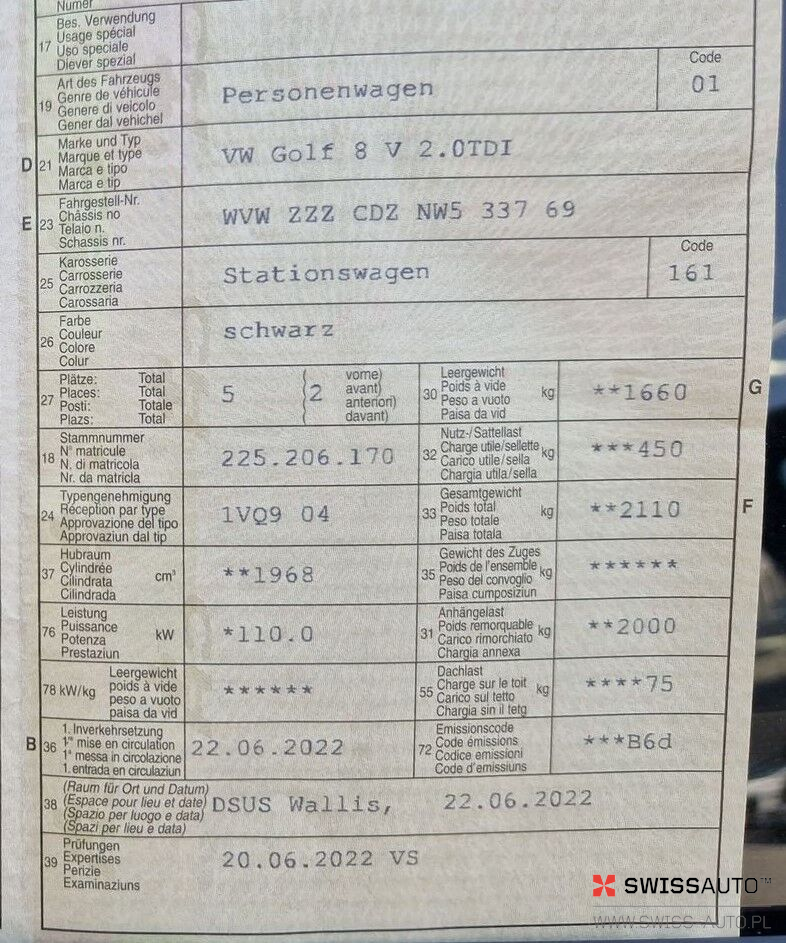 Numer
17 Bes. Verwendung
Usage spécial
Uso speciale
Diever spezial
19 Art des Fahrzeugs
Genre de véhicule
Genere di veicolo
Gener dal vehichel
Personenwagen
Code
01
D 21 Marke und Typ
Marque et type
Marca e tipo
Marca e tip
VW Golf 8 V 2.0TDI
E 23 Fahrgestell-Nr.
Châssis no
Telaio n.
Schassis nr.
WVW ZZZ CDZ NW5 337 69
25 Karosserie
Carrosserie
Carrozzeria
Carossaria
Stationswagen
Code
161
26 Farbe
Couleur
Colore
Colur
schwarz
27 Plätze: Total
Places: Total
Posti: Totale
Plazs: Total
5
( 2 vorne)
avant)
anteriori)
davant)
30 Leergewicht
Poids à vide
Peso a vuoto
Paisa da vid
kg
**1660
G
18 Stammnummer
N° matricule
N. di matricola
Nr. da matricla
225.206.170
32 Nutz-/Sattellast
Charge utile/sellette
Carico utile/sella
Chargia utila/sella
kg
***450
24 Typengenehmigung
Réception par type
Approvazione del tipo
Approvaziun dal tip
1VQ9 04
33 Gesamtgewicht
Poids total
Peso totale
Paisa totala
kg
**2110
F
37 Hubraum
Cylindrée
Cilindrata
Cilindrada
cm³
**1968
35 Gewicht des Zuges
Poids de l'ensemble
Peso del convoglio
Paisa cumposiziun
kg
******
76 Leistung
Puissance
Potenza
Prestaziun
kW
*110.0
31 Anhängelast
Poids remorquable
Carico rimorchiato
Chargia annexa
kg
**2000
78 kW/kg
Leergewicht
poids à vide
peso a vuoto
paisa da vid
******
55 Dachlast
Charge sur le toit
Carico sul tetto
Chargia sin il tetg
kg
****75
B 36 1. Inverkehrsetzung
1re mise en circulation
1a messa in circolazione
1. entrada en circulaziun
22.06.2022
72 Emissionscode
Code émissions
Codice emissioni
Code d'emissiuns
***B6d
38 (Raum für Ort und Datum)
(Espace pour lieu et date)
(Spazio per luogo e data)
(Spazi per lieu e data)
DSUS Wallis, 22.06.2022
39 Prüfungen
Expertises
Perizie
Examinaziuns
20.06.2022 VS
SWISSAUTO™
WWW.SWISS-AUTO.PL